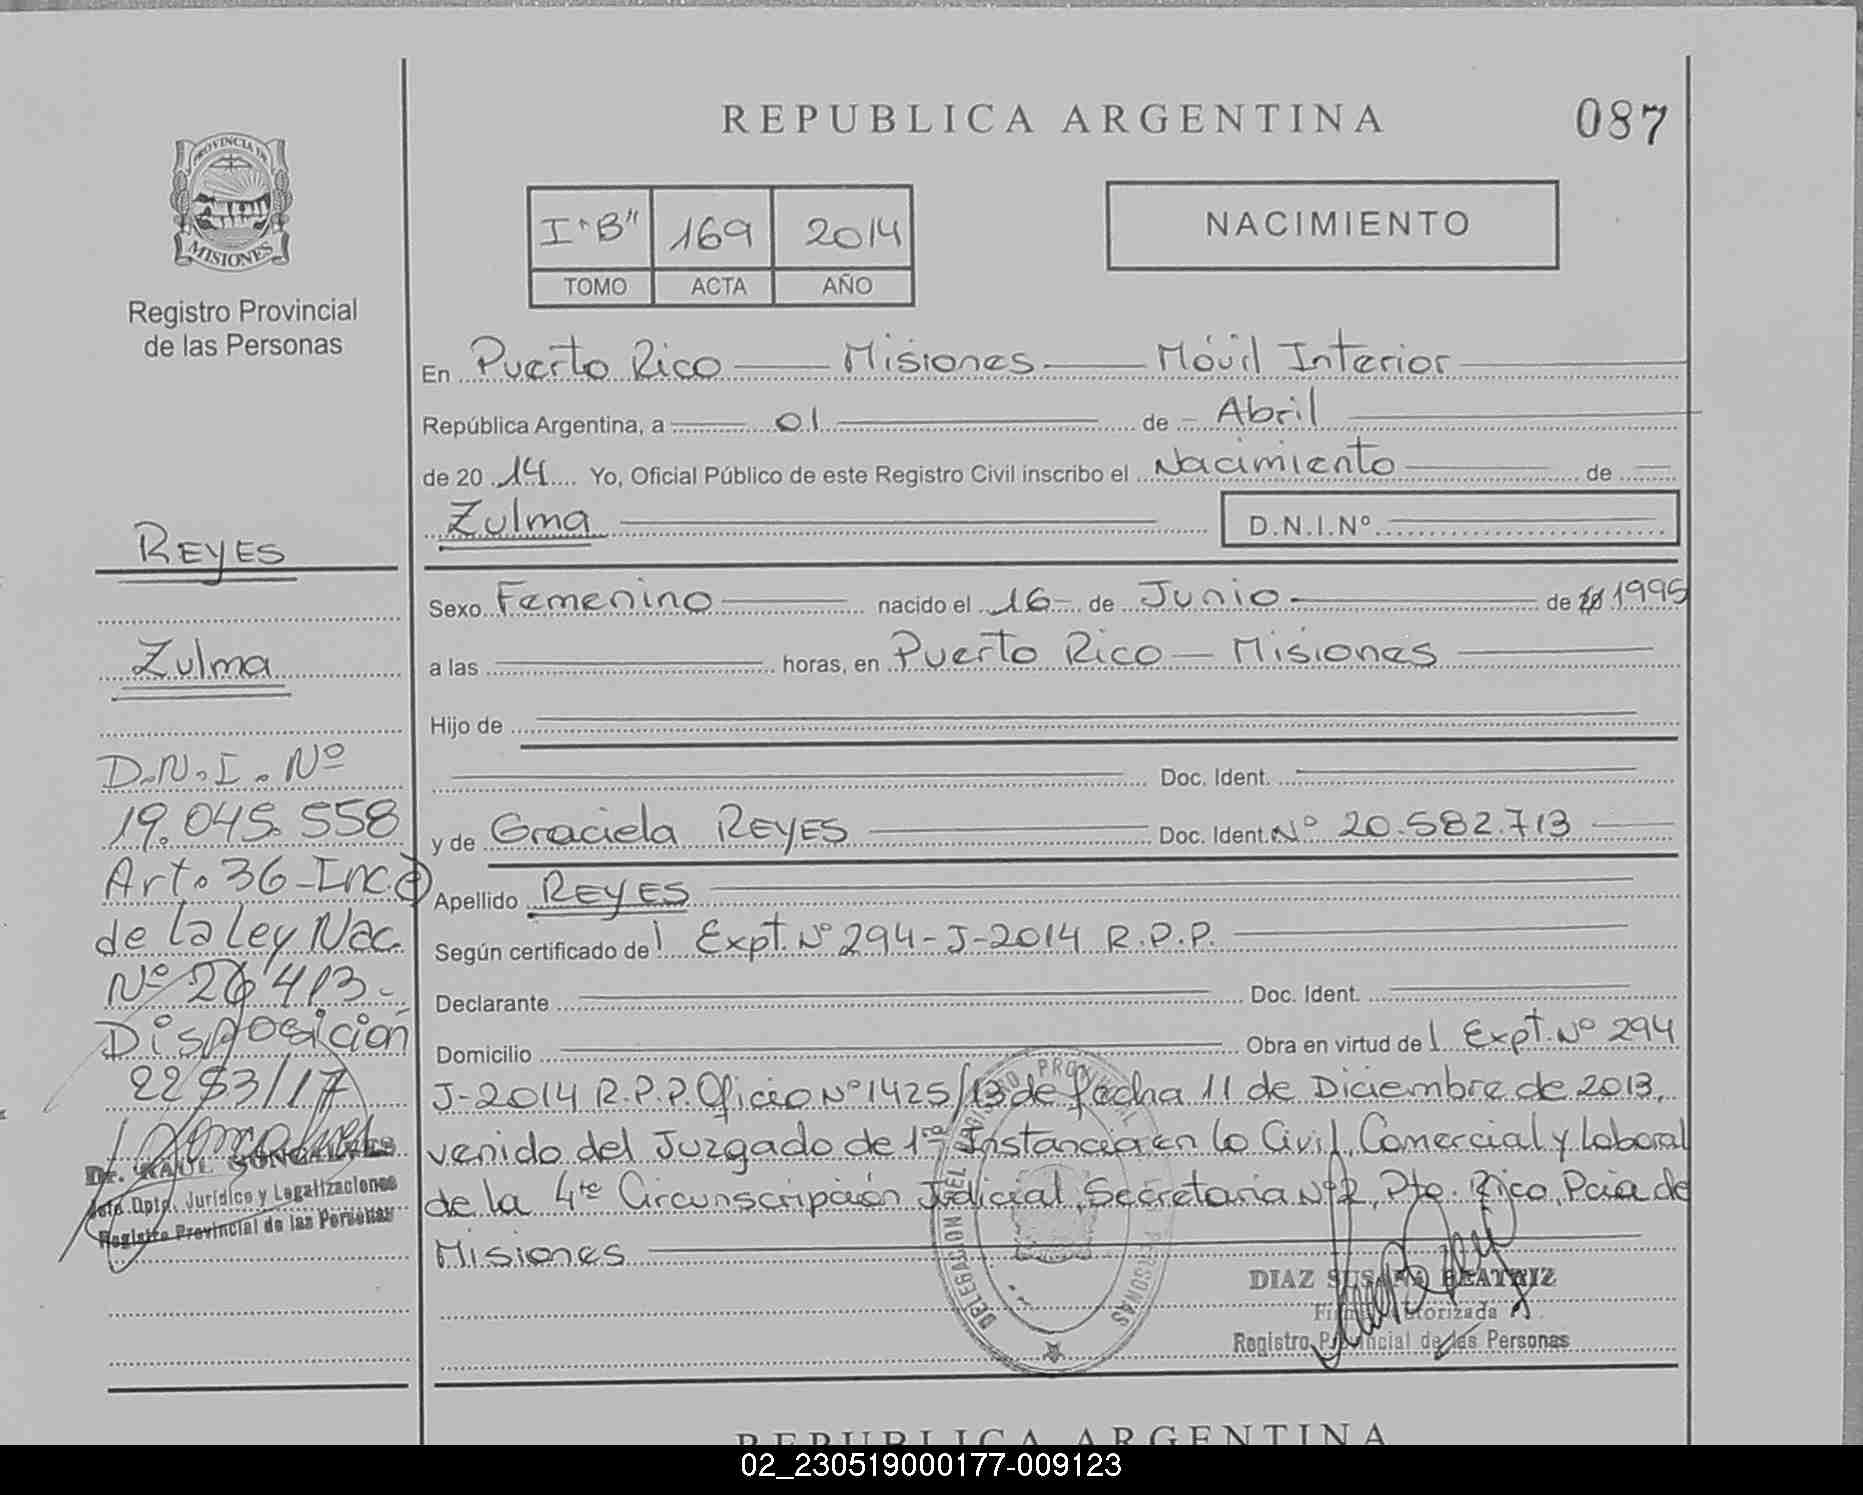 REPUBLICA ARGENTINA
087
PROVINCIA DE
MISIONES
Registro Provincial
de las Personas
I "B" 169 2014
TOMO ACTA AÑO
NACIMIENTO
En Puerto Rico Misiones Móvil Interior
República Argentina, a 01 de Abril
de 20 14 Yo, Oficial Público de este Registro Civil inscribo el Nacimiento de
Zulma D.N.I.Nº
Sexo Femenino nacido el 16 de Junio de 1995
a las horas, en Puerto Rico - Misiones
Hijo de
Doc. Ident.
y de Graciela REYES Doc. Ident. Nº 20.582.713
Apellido REYES
Según certificado de l Expt. Nº 294-J-2014 R.P.P.
Declarante Doc. Ident.
Domicilio Obra en virtud de l Expt. Nº 294
J-2014 R.P.P. Oficio Nº 1425/13 de fecha 11 de Diciembre de 2013,
venido del Juzgado de 1ra Instancia en lo Civil, Comercial y Laboral
de la 4ta Circunscripción Judicial, Secretaria Nº 2, Pto. Rico, Pcia de
Misiones
DIAZ SUSANA BEATRIZ
Firma Autorizada
Registro Provincial de las Personas
REYES
Zulma
D.N.I. Nº
19.045.558
Art. 36-Inc.
de la ley Nac.
Nº 26413-
Disposición
2283/17
Dr. RAUL GONCALVES
Jefe Dpto. Jurídico y Legalizaciones
Registro Provincial de las Personas
DELEGACION DEL PROVINCIAL PERSONAS
REPUBLICA ARGENTINA
02_230519000177-009123